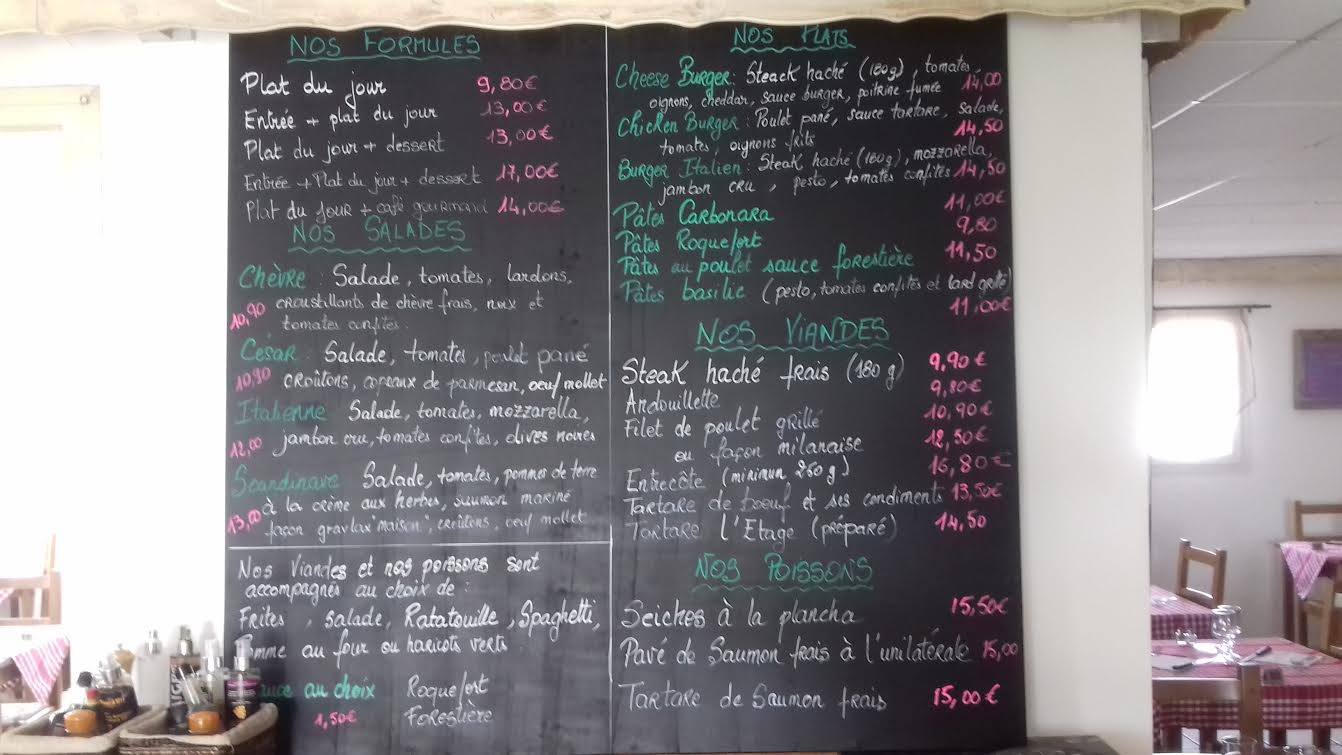 NOS FORMULES
Plat du jour 9,80€
Entrée + plat du jour 13,00€
Plat du jour + dessert 13,00€
Entrée + Plat du jour + dessert 17,00€
Plat du jour + café gourmand 14,00€
NOS SALADES
Chèvre : Salade, tomates, lardons,
croustillants de chèvre frais, noix et
10,90 tomates confites.
César : Salade, tomates, poulet pané
10,90 croûtons, copeaux de parmesan, oeuf mollet
Italienne Salade, tomates, mozzarella,
12,00 jambon cru, tomates confites, olives noires
Scandinave Salade, tomates, pommes de terre
à la crème aux herbes, saumon mariné
13,00 façon gravlax "maison", croûtons, oeuf mollet
Nos Viandes et nos poissons sont
accompagnés au choix de :
Frites, salade, Ratatouille, Spaghetti,
omme au four ou haricots verts
uce au choix Roquefort
1,50€ Forestière
NOS PLATS
Cheese Burger : Steack haché (180g), tomates,
oignons, cheddar, sauce burger, poitrine fumée 14,00
Chicken Burger : Poulet pané, sauce tartare, salade,
tomates, oignons frits 14,50
Burger Italien : Steak haché (180g), mozzarella,
jambon cru, pesto, tomates confites 14,50
Pâtes Carbonara 11,00€
Pâtes Roquefort 9,80
Pâtes au poulet sauce forestière 11,50
Pâtes basilic (pesto, tomates confites et lard grillé)
11,00€
NOS VIANDES
Steak haché frais (180 g) 9,90€
Andouillette 9,80€
Filet de poulet grillé 10,90€
ou façon milanaise 12,50€
Entrecôte (minimum 250 g) 16,80€
Tartare de boeuf et ses condiments 13,50€
Tartare l'Etage (préparé) 14,50
NOS POISSONS
Seiches à la plancha 15,50€
Pavé de Saumon frais à l'unilatérale 15,00
Tartare de Saumon frais 15,00€